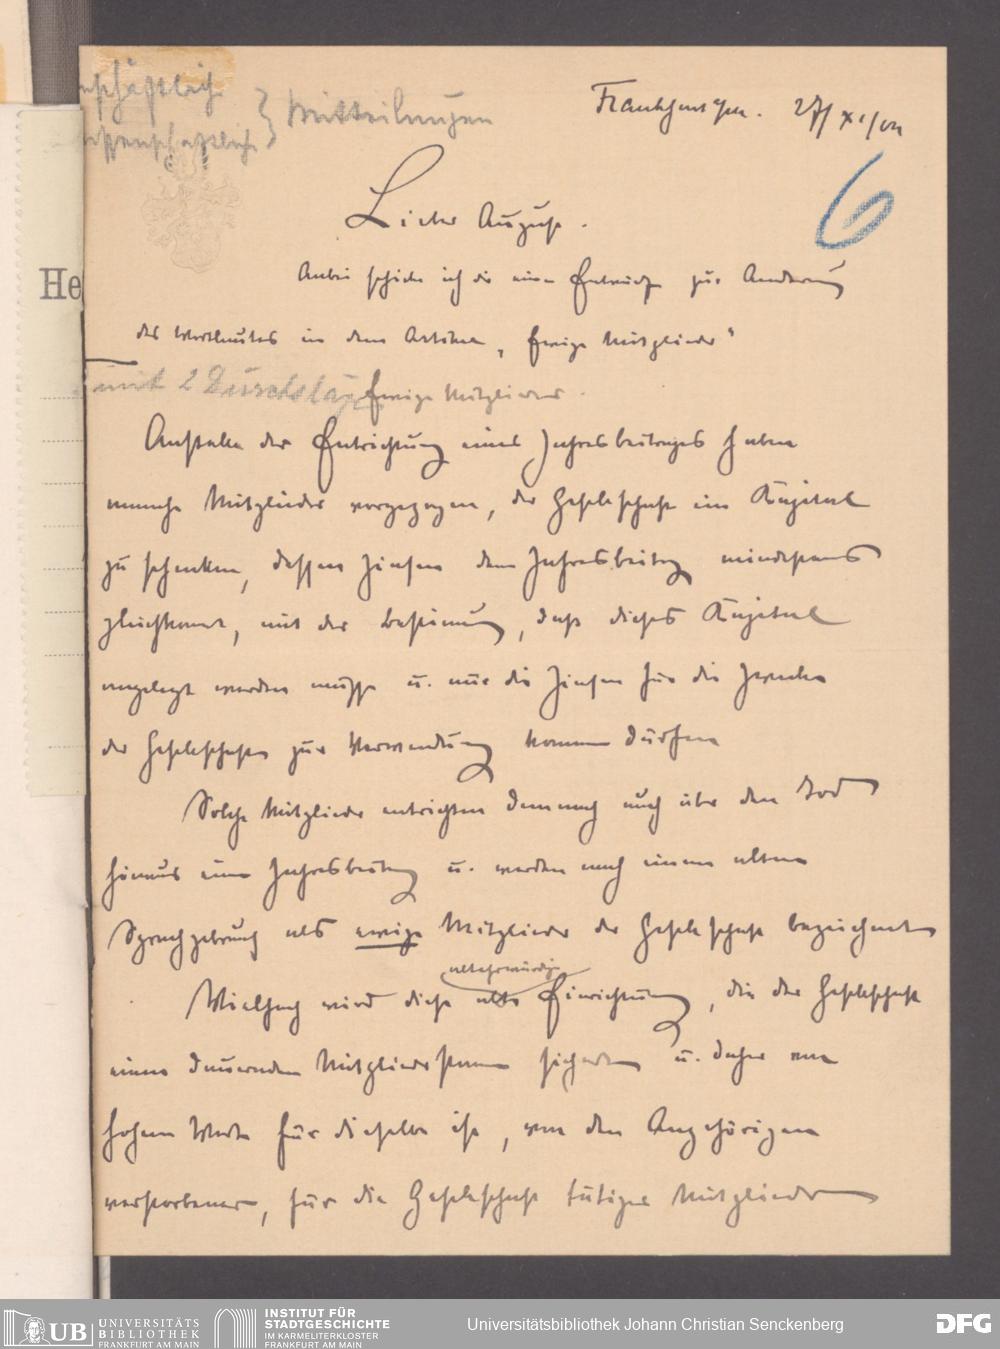 nschäftlich
issenschaftliche } Mitteilungen
Frankfurt a/M. 27/XI/02
6
He
Lieber August.
Anbei schicke ich dir einen Entwurf zur Änderung
des Wortlautes in dem Artikel „Ewige Mitglieder"
mit 2 Durchschläge
Ewige Mitglieder.
Anstelle der Entrichtung eines Jahresbeitrages haben
manche Mitglieder vorgezogen, der Gesellschaft ein Kapital
zu schenken, dessen Zinsen dem Jahresbeitrag mindestens
gleichkommt, mit der Bestimmung, daß dieses Kapital
angelegt werden müsse u. nur die Zinsen für die Zwecke
der Gesellschaft zur Verwendung kommen dürfen
Solche Mitglieder entrichten demnach auch über den Tod
hinaus einen Jahresbeitrag u. werden nach einem alten
Sprachgebrauch als ewige Mitglieder der Gesellschaft bezeichnet
altehrwürdige
Vielfach wird diese alte Einrichtung, die der Gesellschaft
einen dauernden Mitgliederstamm sichert u. daher von
hohem Werte für dieselbe ist, von den Angehörigen
verstorbener, für die Gesellschaft tätiger Mitglieder
UB UNIVERSITÄTS
BIBLIOTHEK
FRANKFURT AM MAIN
INSTITUT FÜR
STADTGESCHICHTE
IM KARMELITERKLOSTER
FRANKFURT AM MAIN
Universitätsbibliothek Johann Christian Senckenberg
DFG